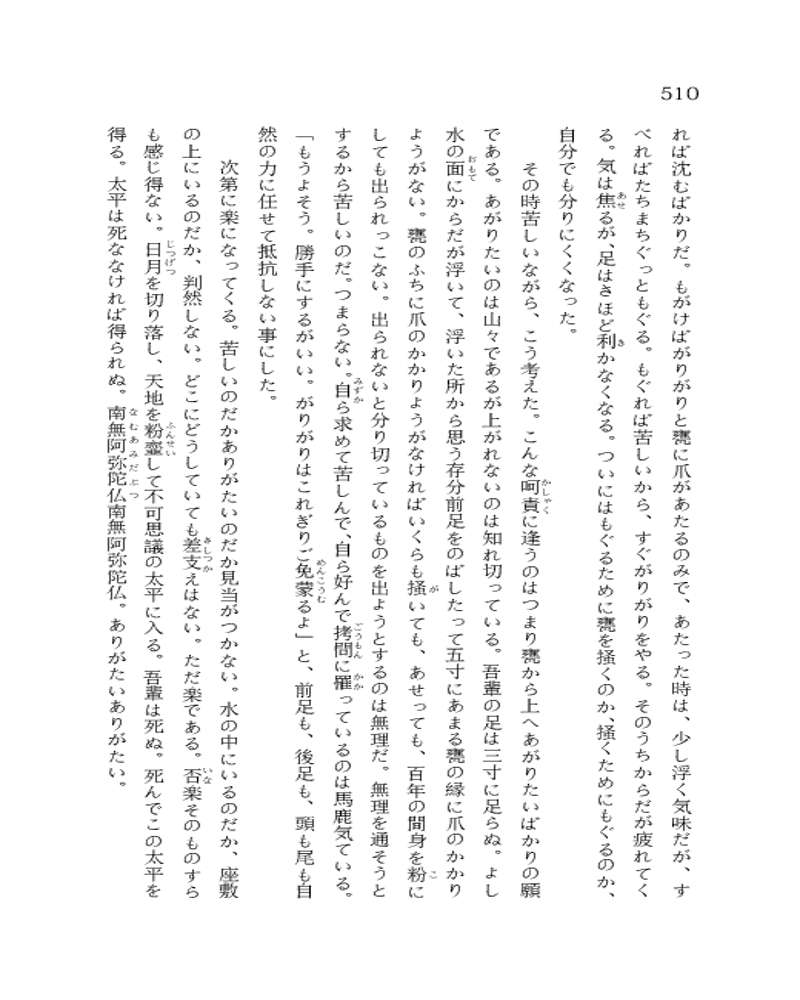 510
れば沈むばかりだ。もがけばがりがりと甕に爪があたるのみで、あたった時は、少し浮く気味だが、す
べればたちまちぐっともぐる。もぐれば苦しいから、すぐがりがりをやる。そのうちからだが疲れてく
る。気は焦るが、足はさほど利かなくなる。ついにはもぐるために甕を掻くのか、掻くためにもぐるのか、
自分でも分りにくくなった。
その時苦しいながら、こう考えた。こんな呵責に逢うのはつまり甕から上へあがりたいばかりの願
である。あがりたいのは山々であるが上がれないのは知れ切っている。吾輩の足は三寸に足らぬ。よし
水の面にからだが浮いて、浮いた所から思う存分前足をのばしたって五寸にあまる甕の縁に爪のかかり
ようがない。甕のふちに爪のかかりようがなければいくらも掻いても、あせっても、百年の間身を粉に
しても出られっこない。出られないと分り切っているものを出ようとするのは無理だ。無理を通そうと
するから苦しいのだ。つまらない。自ら求めて苦しんで、自ら好んで拷問に罹っているのは馬鹿気ている。
「もうよそう。勝手にするがいい。がりがりはこれぎりご免蒙るよ」と、前足も、後足も、頭も尾も自
然の力に任せて抵抗しない事にした。
次第に楽になってくる。苦しいのだかありがたいのだか見当がつかない。水の中にいるのだか、座敷
の上にいるのだか、判然しない。どこにどうしていても差支えはない。ただ楽である。否楽そのものすら
も感じ得ない。日月を切り落し、天地を粉韲して不可思議の太平に入る。吾輩は死ぬ。死んでこの太平を
得る。太平は死ななければ得られぬ。南無阿弥陀仏南無阿弥陀仏。ありがたいありがたい。